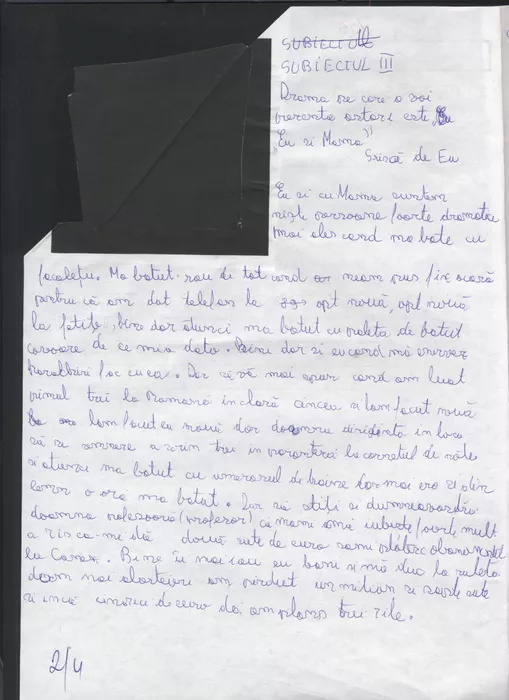 SUBIECTUL
SUBIECTUL III
Drama pe care o voi
prezenta astazi este, Eu
"Eu si Mama"
Scrisă de Eu
Eu si cu Mama suntem
niste persoane foarte dramatice
mai ales cand ma bate cu
facalețu. Ma batut rau de tot cand
pentru că am dat telefon la opt nouă, opt nouă
la fetite, bine dar atunci ma batut cu paleta de batut
covoare de ce mia dato. Bine dar si eu cand mă enervez
fac cu ea. Dar să vă mai spun cand am luat
primul trei la Romană in clasă cincea si lam facut nouă
lam facut eu nouă dar doamna diriginta in loc
să se semneze a scris trei in paranteză la carnetul de note
si atunci ma batut cu umerasul de haine dar mai era si din
lemn o oră ma batut. Dar să stiți si dumneavoastră
doamna profesoară (profesor) că mama mă iubeste foarte mult
a zis ca-mi dă două sute de euro sami plătesc abonamentul
la Cosmox. Bine si mai iau eu bani si mă duc la ruleta
doar mai alaltaieri am pierdut un milion si sapte sute
si incă cincizeci de euro da am plans trei zile.
2/4